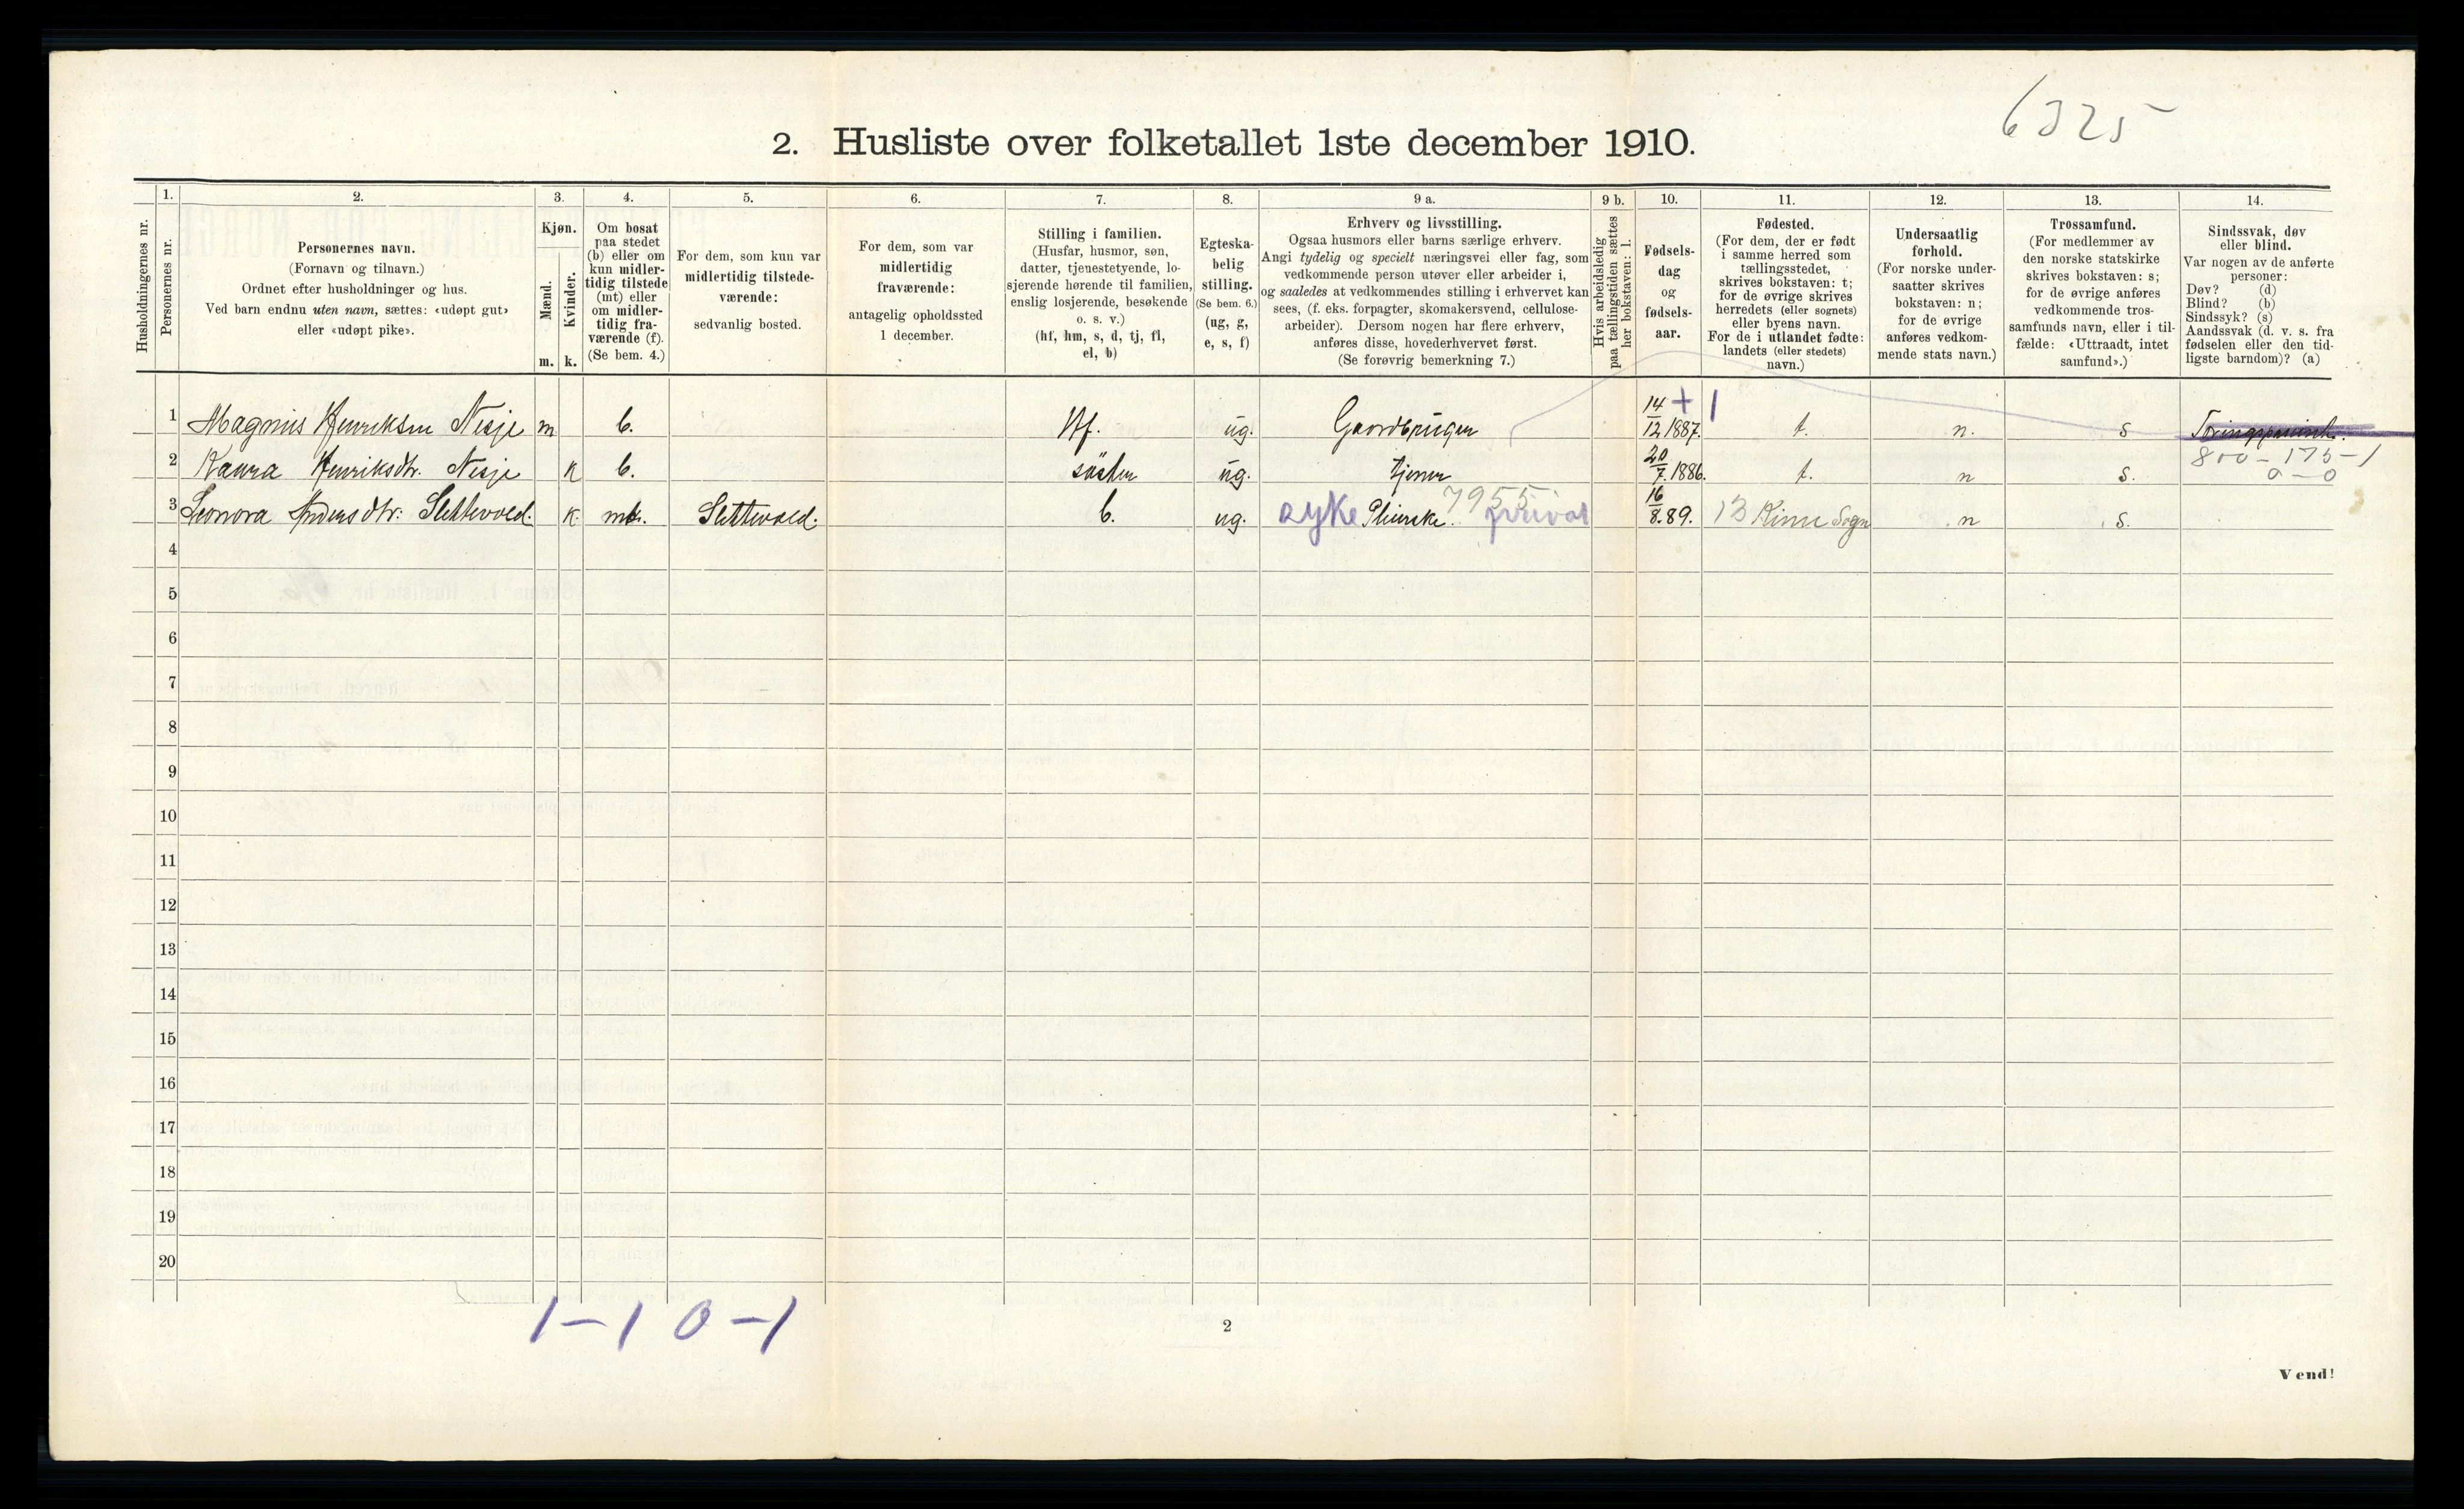 6325
2. Husliste over folketallet 1ste december 1910.
Husholdningernes nr.
1.
Personernes nr.
2.
Personernes navn.
(Fornavn og tilnavn.)
Ordnet efter husholdninger og hus.
Ved barn endnu uten navn, sættes: «udøpt gut»
eller «udøpt pike».
3.
Kjøn.
Mænd.
Kvinder.
m. k.
4.
Om bosat
paa stedet
(b) eller om
kun midler-
tidig tilstede
(mt) eller
om midler-
tidig fra-
værende (f).
(Se bem. 4.)
5.
For dem, som kun var
midlertidig tilstede-
værende:
sedvanlig bosted.
6.
For dem, som var
midlertidig
fraværende:
antagelig opholdssted
1 december.
7.
Stilling i familien.
(Husfar, husmor, søn,
datter, tjenestetyende, lo-
sjerende hørende til familien,
enslig losjerende, besøkende
o. s. v.)
(hf, hm, s, d, tj, fl,
el, b)
8.
Egteska-
belig
stilling.
(Se bem. 6.)
(ug, g,
e, s, f)
9 a.
Erhverv og livsstilling.
Ogsaa husmors eller barns særlige erhverv.
Angi tydelig og specielt næringsvei eller fag, som
vedkommende person utøver eller arbeider i,
og saaledes at vedkommendes stilling i erhvervet kan
sees, (f. eks. forpagter, skomakersvend, cellulose-
arbeider). Dersom nogen har flere erhverv,
anføres disse, hovederhvervet først.
(Se forøvrig bemerkning 7.)
9 b.
Hvis arbeidsledig
paa tællingstiden sættes
her bokstaven: l.
10.
Fødsels-
dag
og
fødsels-
aar.
11.
Fødested.
(For dem, der er født
i samme herred som
tællingsstedet,
skrives bokstaven: t;
for de øvrige skrives
herredets (eller sognets)
eller byens navn.
For de i utlandet fødte:
landets (eller stedets)
navn.)
12.
Undersaatlig
forhold.
(For norske under-
saatter skrives
bokstaven: n;
for de øvrige
anføres vedkom-
mende stats navn.)
13.
Trossamfund.
(For medlemmer av
den norske statskirke
skrives bokstaven: s;
for de øvrige anføres
vedkommende tros-
samfunds navn, eller i til-
fælde: «Uttraadt, intet
samfund».)
14.
Sindssvak, døv
eller blind.
Var nogen av de anførte
personer:
Døv? (d)
Blind? (b)
Sindssyk? (s)
Aandssvak (d. v. s. fra
fødselen eller den tid-
ligste barndom)? (a)
1 Magnus Henriksen Nesje m b. Hf. ug. Gaardbruger 14/12 1887. + 1 t. n. s
2 Kaura Henriksdtr. Nesje k b. søster ug. tjener 20/7. 1886. t. n s. 800 – 175 – 1
0 – 0
3 Leonora Andersdtr: Slettevold. k. mt. Slettevold. b. ug. syke Pleierske. 7955 privat 16/8. 89. 13 Kinn Sogn n s.
4
5
6
7
8
9
10
11
12
13
14
15
16
17
18
19
20
1 – 1 0 – 1
2
Vend!